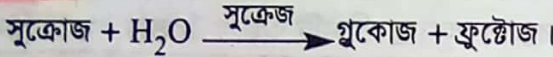 সুক্রোজ + H₂O সুক্রেজ → গ্লুকোজ + ফ্রুক্টোজ।